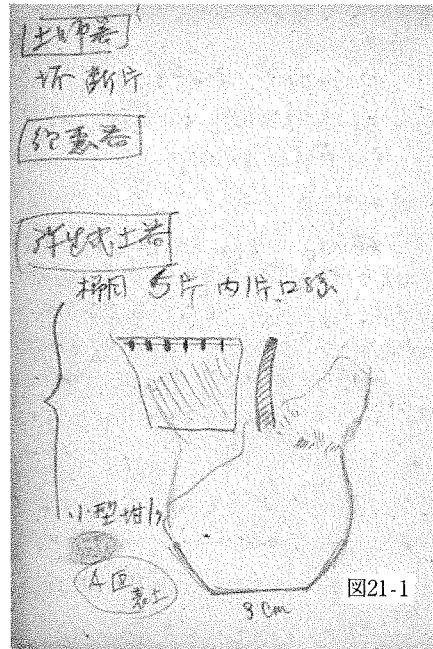 土師器
坏 断片
須恵器
弥生式土器
櫛目 5片 内1片口縁
小型坩1ヶ
A区
表土
9 cm
図21-1